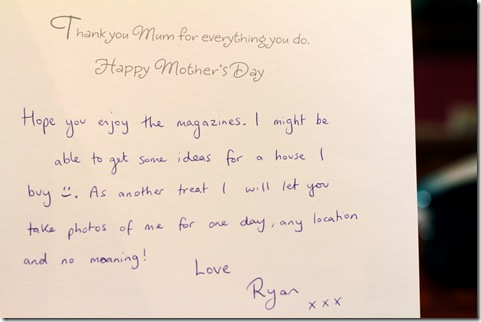 Thank you Mum for everything you do.
Happy Mother's Day
Hope you enjoy the magazines. I might be
able to get some ideas for a house I
buy :). As another treat I will let you
take photos of me for one day, any location
and no moaning!
Love
Ryan xxx